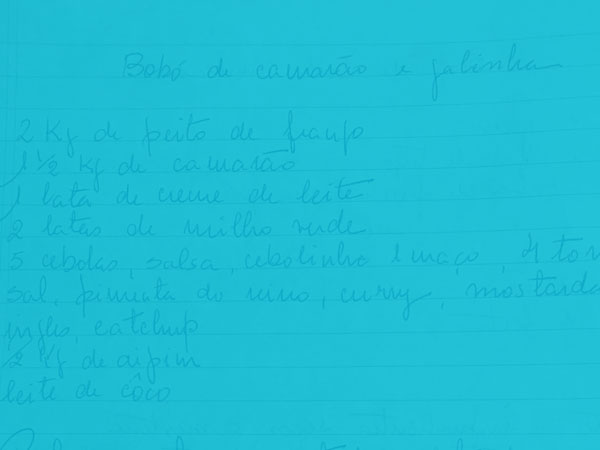 Bobó de camarão e galinha
2 Kg de peito de frango
1 1/2 Kg de camarão
1 lata de creme de leite
2 latas de milho verde
5 cebolas, salsa, cebolinha 1 maço, 4 tom
sal, pimenta do reino, curry, mostarda
inglês, catchup
2 Kg de aipim
leite de côco